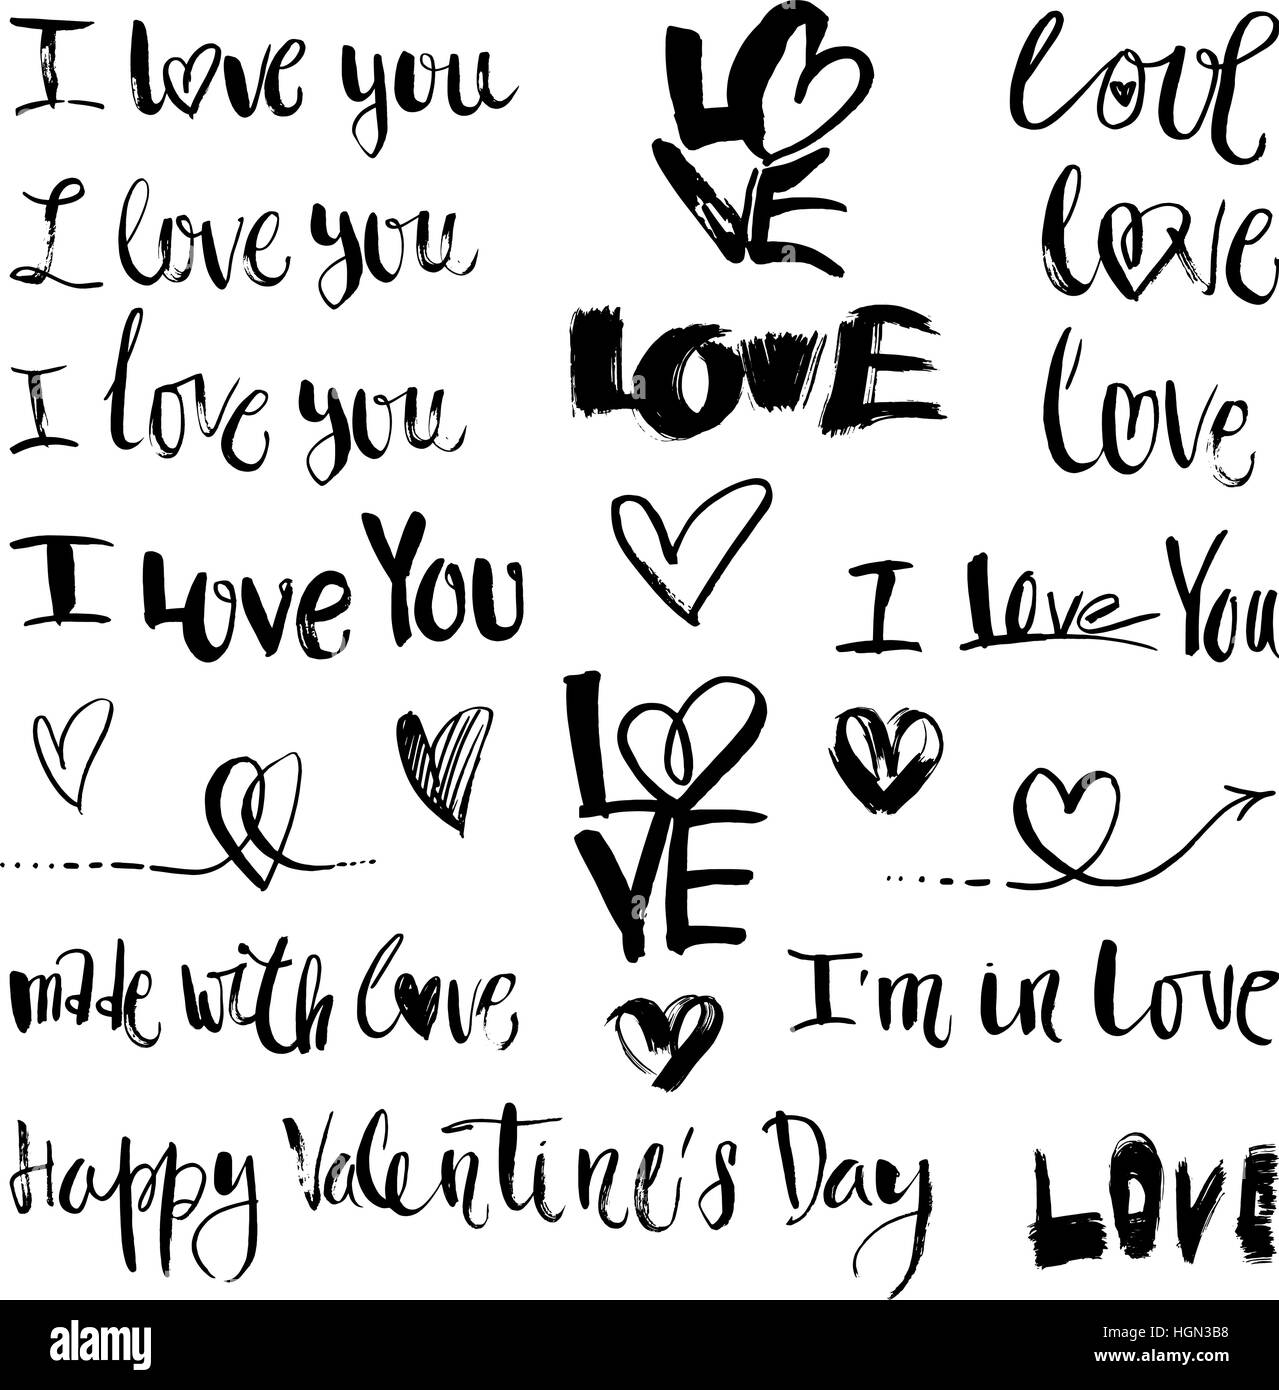 I love you
LO
VE
love
I love you
love
LOVE
I love you
love
I Love You
I Love You
LO
VE
made with love
I'm in love
Happy Valentine's Day
LOVE
alamy stock photo
HGN3B8
www.alamy.com